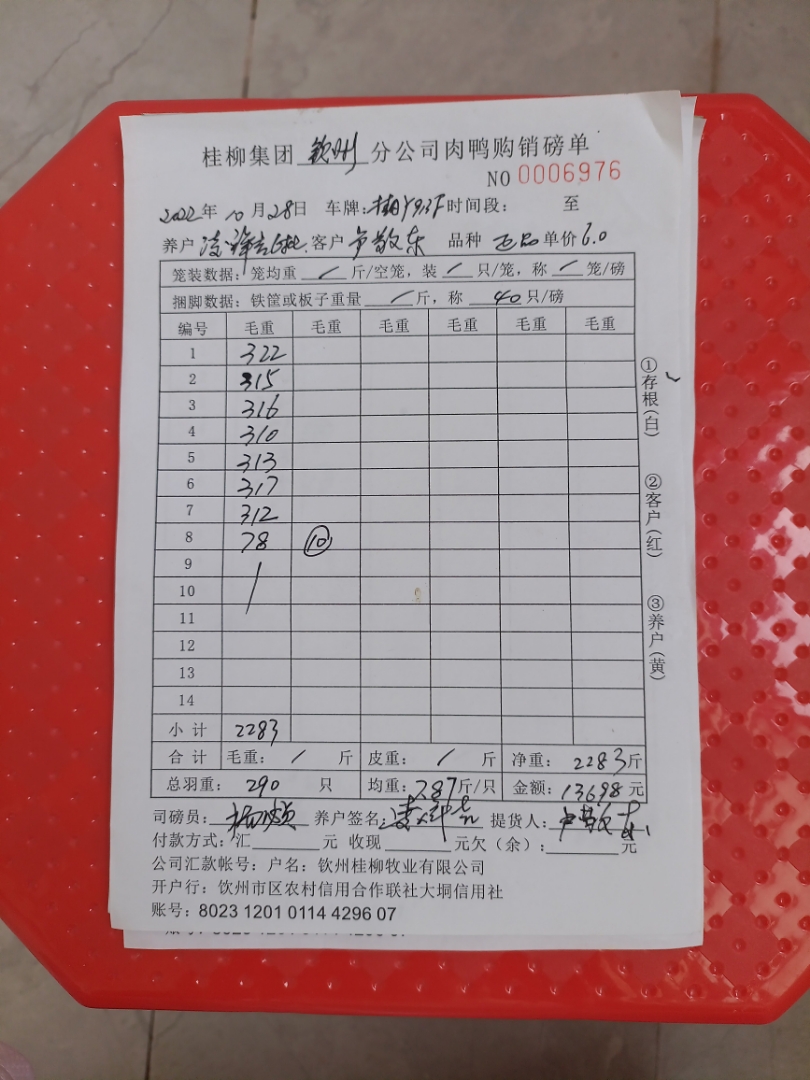 桂柳集团 钦州 分公司肉鸭购销磅单
NO 0006976
2022年 10月28日 车牌: 时间段: 至
养户 客户 东 品种 单价 6.0
笼装数据: 笼均重 / 斤/空笼, 装 / 只/笼, 称 / 笼/磅
捆脚数据: 铁筐或板子重量 / 斤, 称 40 只/磅
编号 毛重 毛重 毛重 毛重 毛重 毛重
1 322
2 315
3 316
4 310
5 313
6 317
7 312
8 78 ⑩
9 /
10
11
12
13
14
小计 2283
合计 毛重: / 斤 皮重: / 斤 净重: 2283斤
总羽重: 290 只 均重: 7.87斤/只 金额: 13698 元
司磅员: 养户签名: 提货人: 东
付款方式: 汇 元 收现 元欠(余): 元
公司汇款帐号: 户名: 钦州桂柳牧业有限公司
开户行: 钦州市区农村信用合作联社大垌信用社
账号: 8023 1201 0114 4296 07
①存根(白) ✓
②客户(红)
③养户(黄)